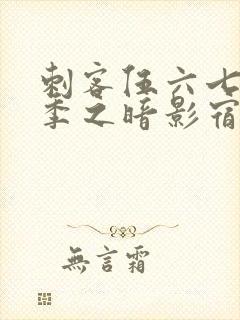 刺客伍六七
季之暗影宿
無言霜